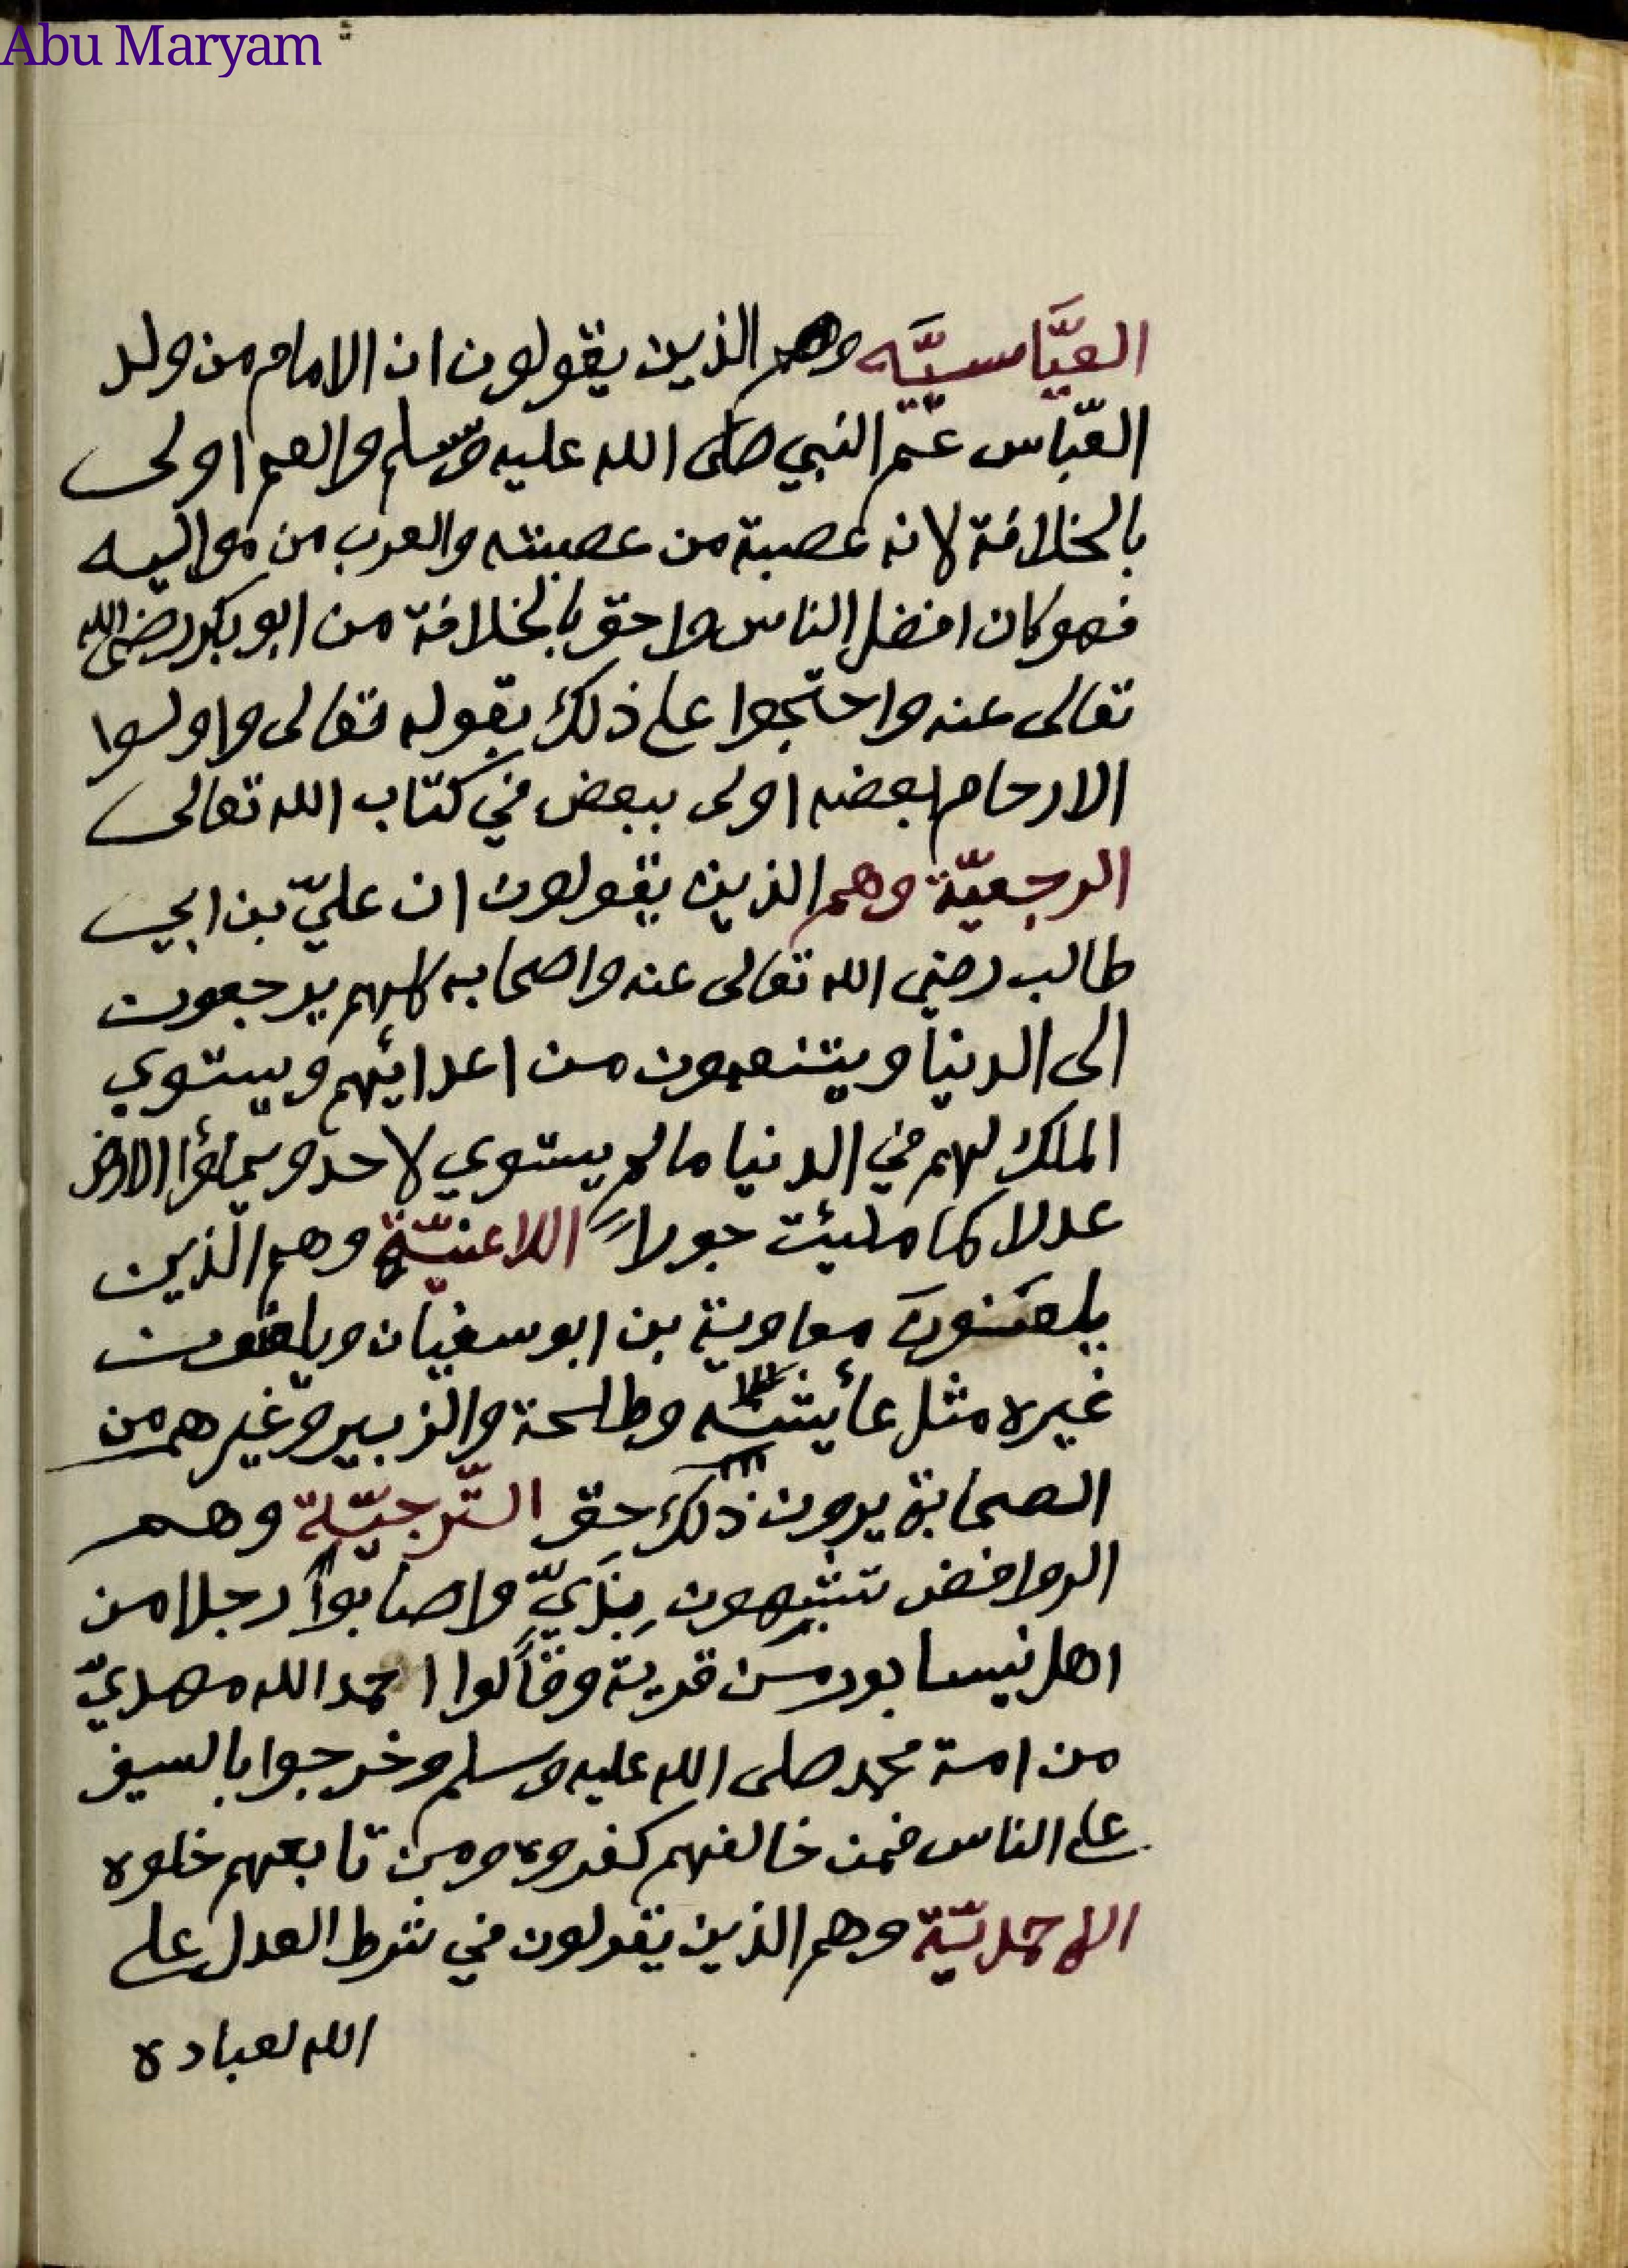 Abu Maryam
العبَّاسيَّه وهم الذين يقولون ان الامام من ولد
العبّاس عم النبي صلى الله عليه وسلم والعم اولى
بالخلافة لانه عصبة من عصبته والعرب من مواليه
فهو كان افضل الناس واحق بالخلافة من ابو بكر رضى الله
تعالى عنه واحتجوا على ذلك بقوله تعالى واولوا
الارحام بعضه اولى ببعض في كتاب الله تعالى
الرجعيّة وهم الذين يقولون ان عليّ بن ابي
طالب رضي الله تعالى عنه واصحابه كلهم يرجعون
الى الدنيا ويتنعمون من اعدائهم ويستوي
الملك لهم في الدنيا مالم يستوي لاحد ويملؤا الارض
عدلا كما ملئت جورلاً اللاعنيّة وهم الذين
يلعنون معاوية بن ابو سفيان ويلعنون
غيره مثل عائيشه وطلحة والزبير وغيرهم من
الصحابة يرون ذلك حق التّرجيّة وهم
الروافض تتشبهون بزيّ واصابوا رجلا من
اهل نيسابور من قرية وقالوا احمد الله مهديّ
من امة محمد صلى الله عليه وسلم وخرجوا بالسيف
على الناس فمن خالفهم كفروه ومن تابعهم خلوه
الاحمديّة وهم الذين يقولون في شرط العدل على
الله لعباده